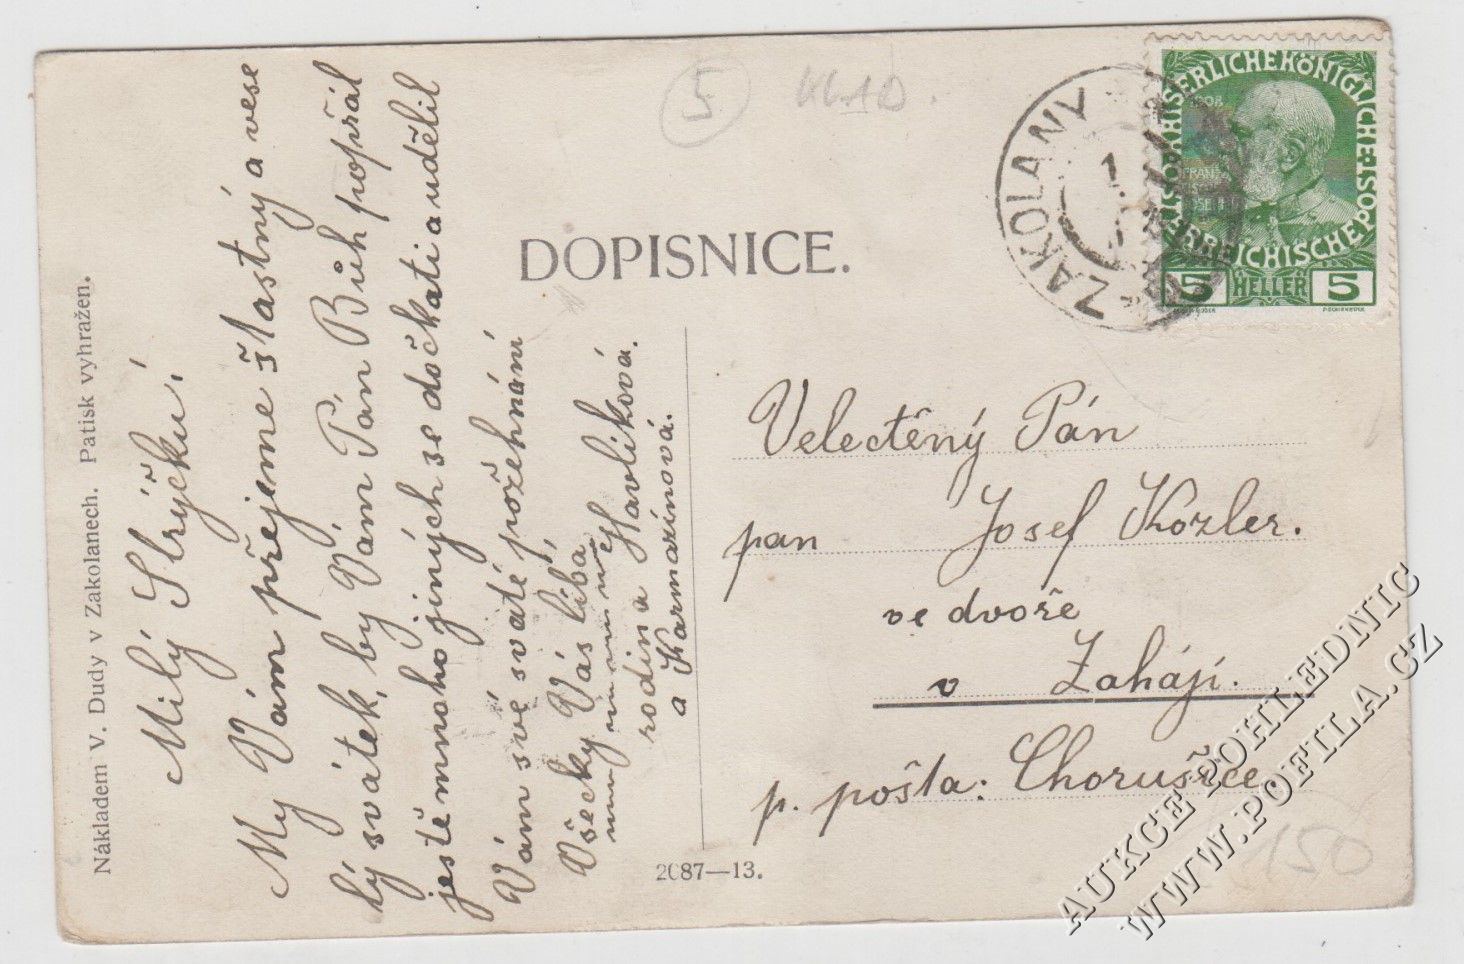 Nákladem V. Dudy v Zakolanech. Patisk vyhražen.
Milý Strýčku!
My Vám přejeme šťastný a vese
lý svátek, by Vám Pán Bůh popřál
jestě mnoho jiných se dočkati a udělil
Vám své svaté požehnání
Všecky Vás líbá,
rodina Havlíková
a Karmazínová.
5
KLAD.
DOPISNICE.
ZAKOLANY
KAISERLICHE KÖNIGLICHE
ÖSTERREICHISCHE POST
5 HELLER 5
Velectěný Pán
pan Josef Kozler.
ve dvoře
v Zahájí.
p. pošta: Chorušice.
2087—13.
150
AUKCE POHLEDNIC
WWW.POFILA.CZ